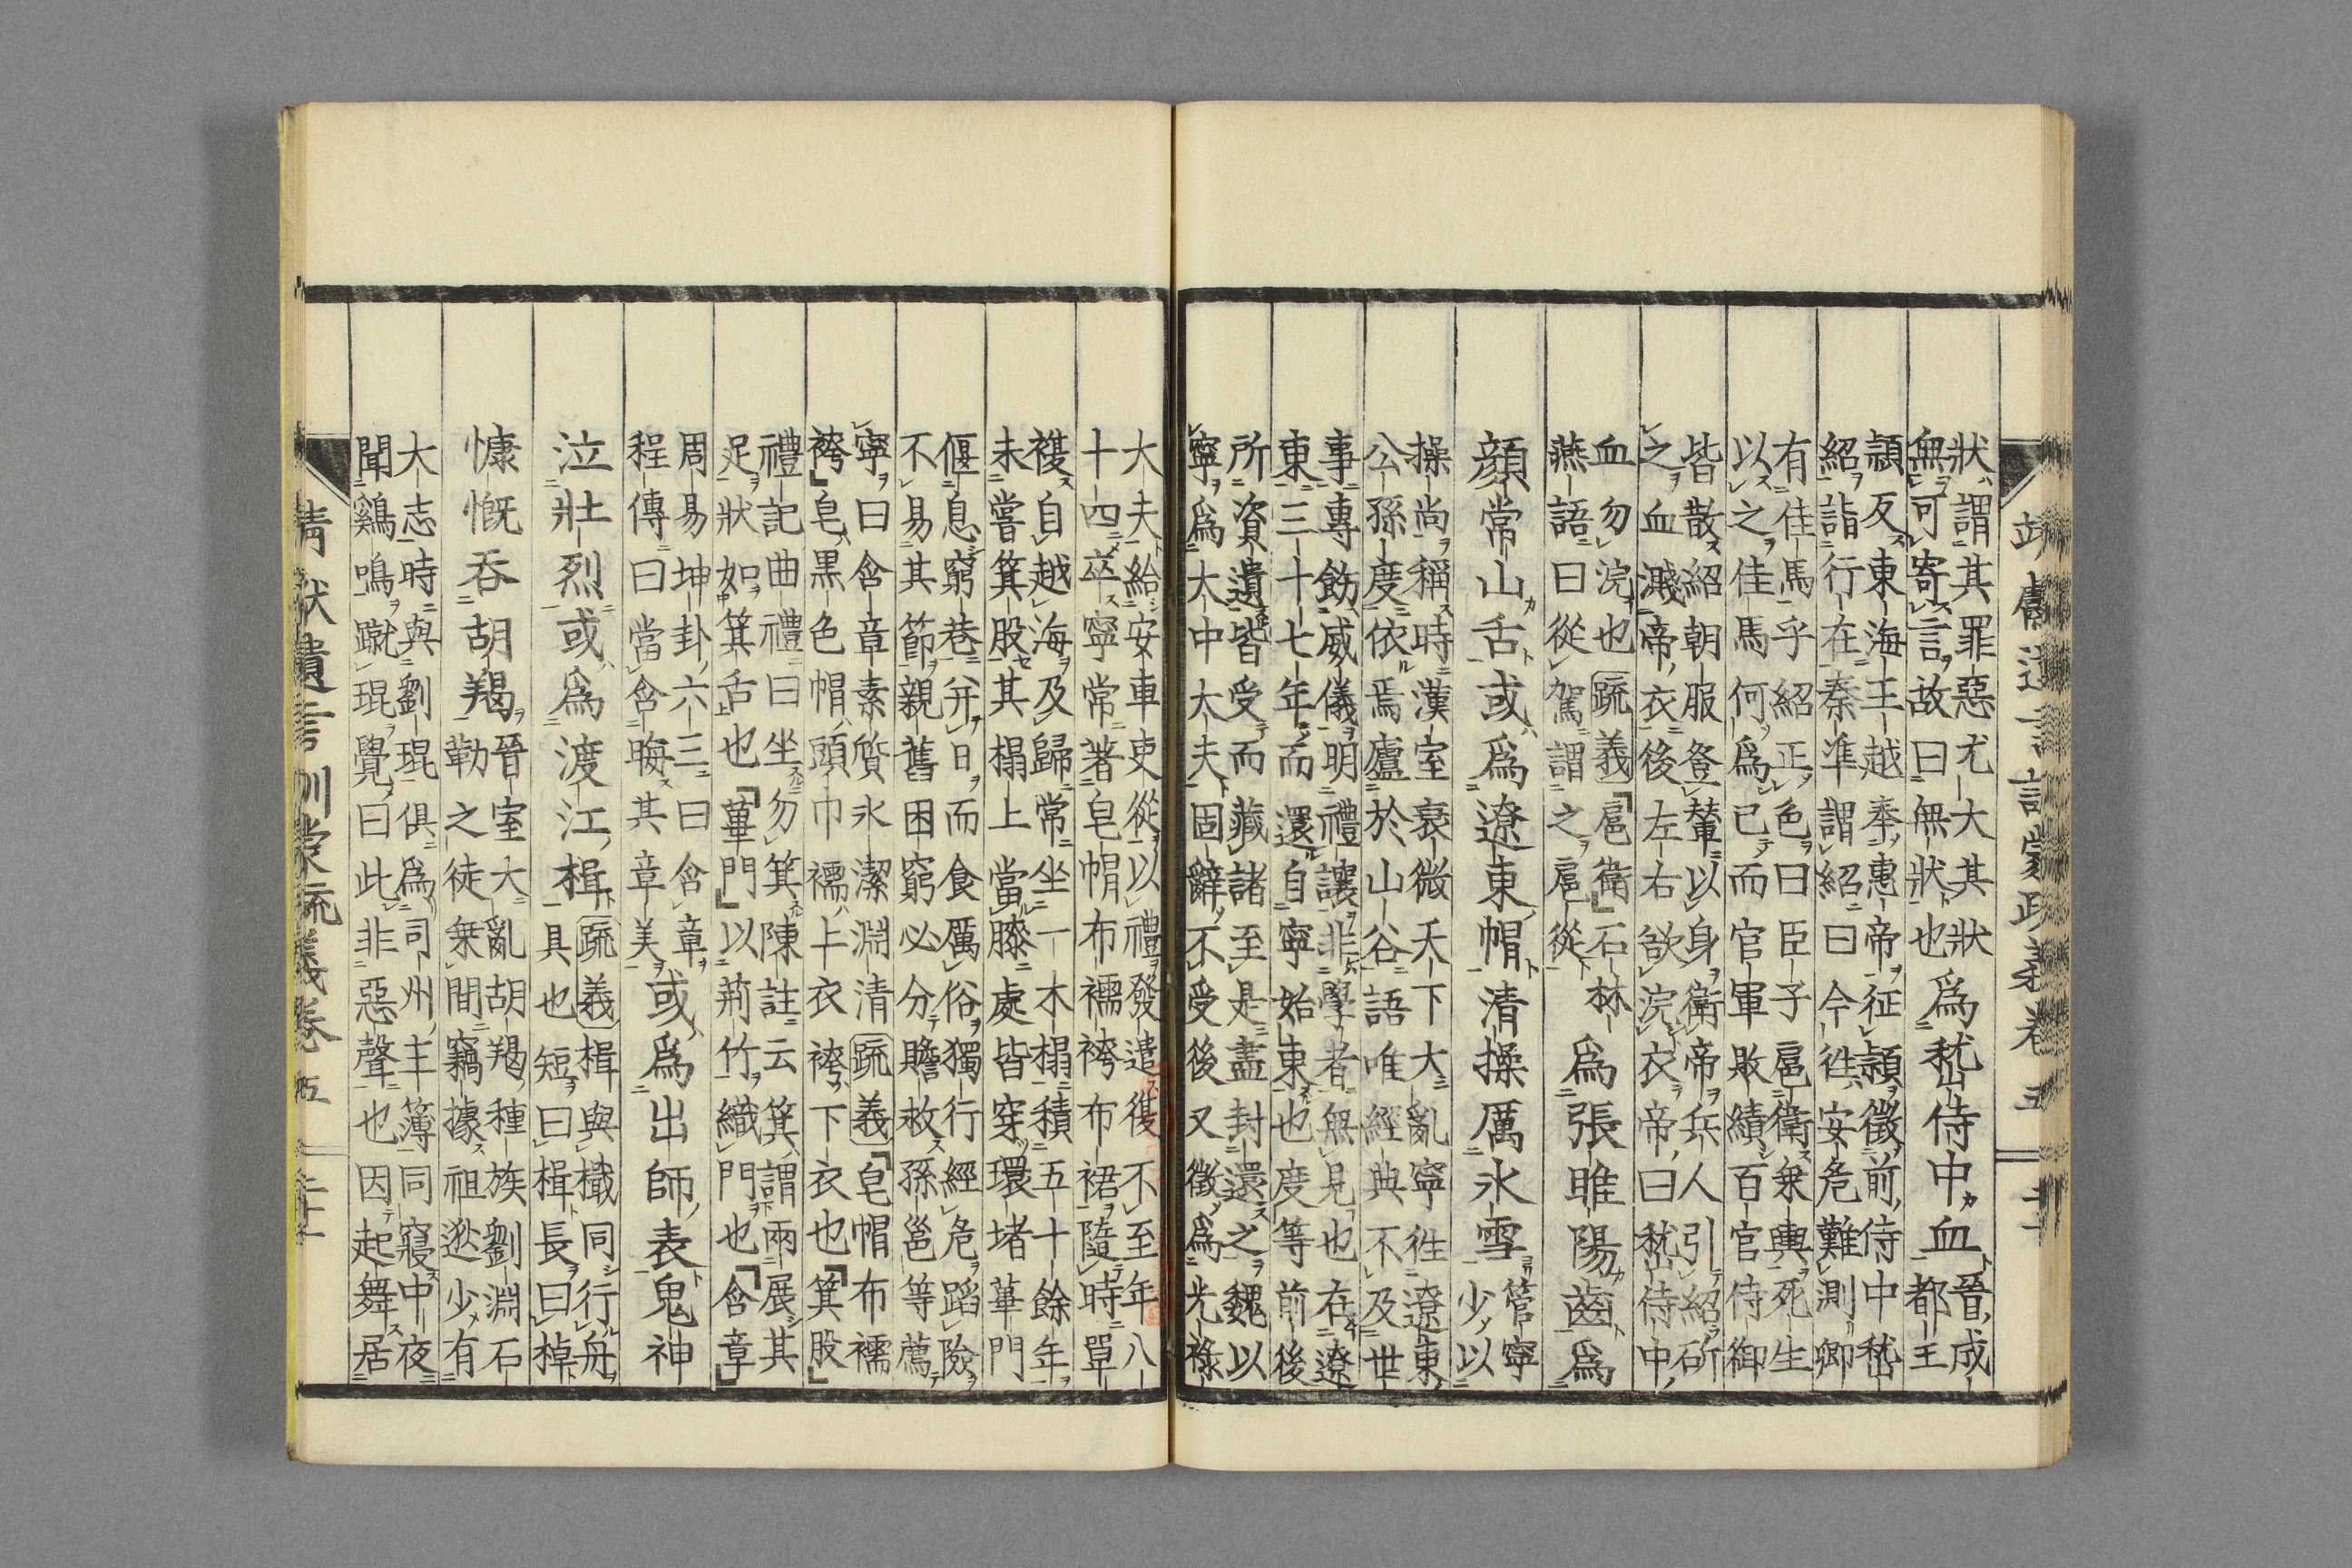 靖獻遺言訓蒙疏義卷五
狀謂其罪惡尤大其狀
無可寄言故曰無狀也
爲嵇侍中血
晉成
都王
頴反東海王越奉惠帝征頴徵前侍中嵇
紹詣行在秦準謂紹曰今徃安危難測卿
有佳馬乎紹正色曰臣子扈衛乗輿死生
以之佳馬何爲已而官軍敗績百官侍御
皆散紹朝服登輦以身衛帝兵人引紹斫
之血濺帝衣後左右欲浣衣帝曰嵇侍中
血勿浣也疏義扈衛石林
燕語曰從駕謂之扈從
爲張睢陽齒爲
顔常山舌或爲遼東帽清操厲氷雪
管寧
少以
操尚稱時漢室衰微天下大亂寧徃遼東
公孫度依焉廬於山谷語唯經典不及世
事專飭威儀明禮讓非學者無見也在遼
東三十七年而還自寧始東也度等前後
所資遺皆受而藏諸至是盡封還之魏以
寧爲大中大夫固辭不受後又徵爲光祿
大夫給安車吏從以禮發遣復不至年八
十四卒寧常著皂帽布襦袴布裙隨時單
複自越海及歸常坐一木榻積五十餘年
未嘗箕股其榻上當膝處皆穿環堵蓽門
偃息窮巷并日而食厲俗獨行經危蹈險
不易其節親舊困窮必分贍救孫邕等薦
寧曰含章素質氷潔淵清疏義皂帽布襦
袴皂黒色帽頭巾襦上衣袴下衣也箕股
禮記曲禮曰坐勿箕陳註云箕謂兩展其
足狀如箕舌也蓽門以荊竹織門也含章
周易坤卦六三曰含章
程傳曰當含晦其章美
或爲出師表鬼神
泣壯烈或爲渡江楫
疏義楫與檝同行舟
具也短曰楫長曰棹
慷慨呑胡羯
晉室大亂胡羯種族劉淵石
勒之徒乗間竊據祖逖少有
大志時與劉琨俱爲司州主簿同寢中夜
聞鷄鳴蹴琨覺曰此非惡聲也因起舞居
靖獻遺言訓蒙疏義卷五